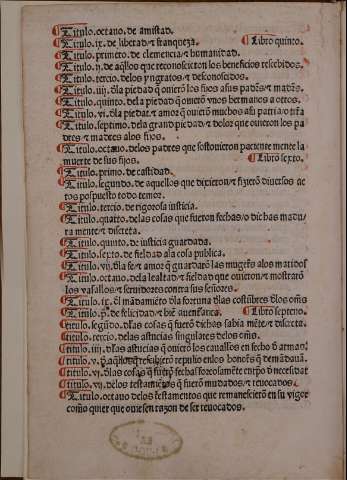 Titulo. octauo. de amistad.
Titulo. ix. de libertad ⁊ franqueza. Libro quinto.
Titulo. primero. de clemencia ⁊ humanidad.
Titulo. ij. de aq̃llos que reconoscieron los beneficios rescebidos.
Titulo. tercio. de los yngratos ⁊ desconoscidos.
Titulo. iiij. d̃la piedad q̃ ouierõ los fijos a sus padr̃s ⁊ madr̃s.
Titulo. quinto. de la piedad q̃ ouierõ vnos hermanos a otros.
Titulo. vi. d̃la piedat ⁊ amor q̃ ouierõ muchos a su patria o tr̃a
Titulo. septimo. de la grand piedad ⁊ dolor que ouieron los pa
dres ⁊ madres a los fijos.
Titulo. octauo. de los padres que sostouieron paciente mente la
muerte de sus fijos. Libro sexto.
Titulo. primo. de castidad.
Titulo. segundo. de aquellos que dixieron ⁊ fizierõ diuersos ac
tos pospuesto todo temor.
Titulo. tercio. de rigorosa iusticia.
Titulo. quatro. de las cosas que fueron fechas / o dichas madu
ra mente ⁊ discreta.
Titulo. quinto. de iusticia guardada.
Titulo. sexto. de fieldad a la cosa publica.
Titulo. vij. d̃la fe ⁊ amor q̃ guardarõ las mugeres a los maridos
Titulo. octauo. de la lealtad ⁊ fieldad que ouieron ⁊ mostrarõ
los vasallos ⁊ seruidores contra sus señores.
Titulo. ix. d̃l mudamiẽto d̃la fortuna d̃las costũbres d̃los om̃s
Titulo. p̃. de felicidad ⁊ biẽ auenturãça. Libro septeno.
titulo. segũdo. d̃las cosas q̃ fuerõ dichas sabia mẽte ⁊ discreta.
titulo. tercio. de las astucias singulares de los om̃s.
titulo. iiij. d̃las astucias q̃ ouierõ los cauallos en fecho d̃ armas
titulo. vj. d̃las cosas q̃ fuerõ fechas forçosamẽte cuẽpo d̃ necesidat
titulo. vij. de los testamẽtos q̃ fuerõ mudados ⁊ reuocados.
Titulo. octauo de los testamentos que remanescierõ en su vigor
como quier que ouiesen razon de ser reuocados.